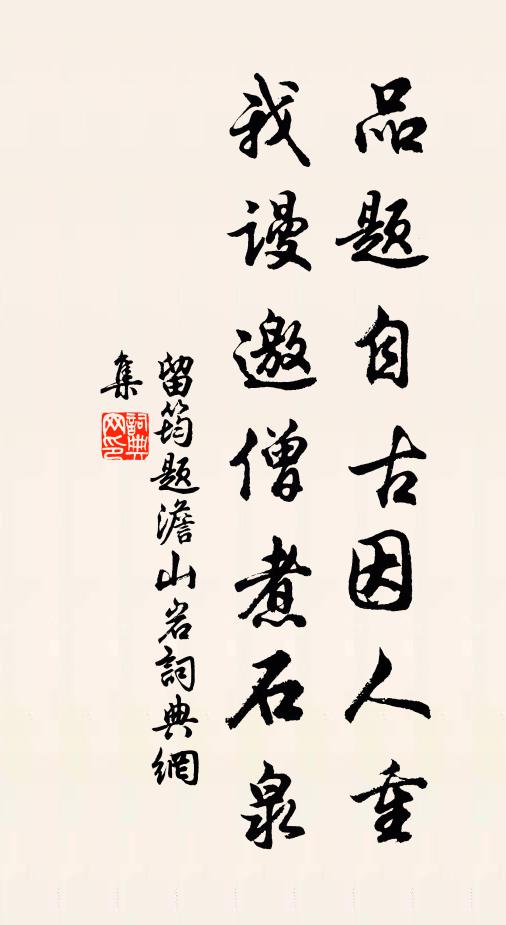 品题自古因人重
我谩邀僧煮石泉
留筠题澹山岩詞典網
集
詞典网印